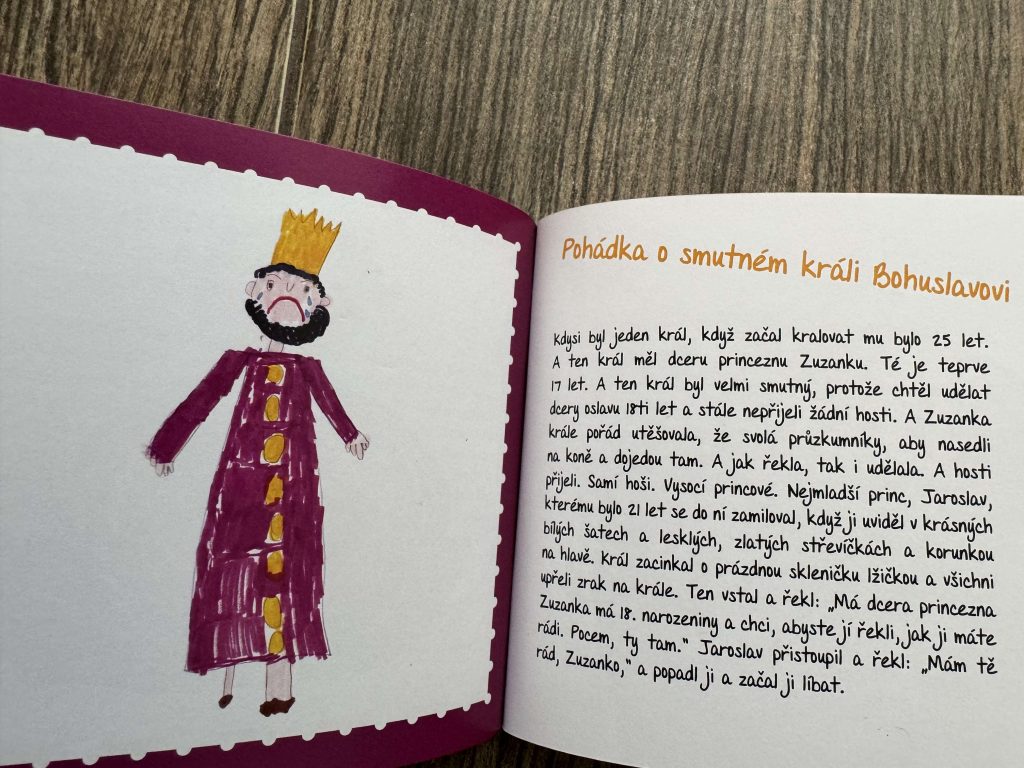 Pohádka o smutném králi Bohuslavovi
Kdysi byl jeden král, když začal kralovat mu bylo 25 let.
A ten král měl dceru princeznu Zuzanku. Té je teprve
17 let. A ten král byl velmi smutný, protože chtěl udělat
dcery oslavu 18ti let a stále nepřijeli žádní hosti. A Zuzanka
krále pořád utěšovala, že svolá průzkumníky, aby nasedli
na koně a dojedou tam. A jak řekla, tak i udělala. A hosti
přijeli. Samí hoši. Vysocí princové. Nejmladší princ, Jaroslav,
kterému bylo 21 let se do ní zamiloval, když ji uviděl v krásných
bílých šatech a lesklých, zlatých střevíčkách a korunkou
na hlavě. Král zacinkal o prázdnou skleničku lžičkou a všichni
upřeli zrak na krále. Ten vstal a řekl: „Má dcera princezna
Zuzanka má 18. narozeniny a chci, abyste jí řekli, jak ji máte
rádi. Pocem, ty tam." Jaroslav přistoupil a řekl: „Mám tě
rád, Zuzanko," a popadl ji a začal ji líbat.